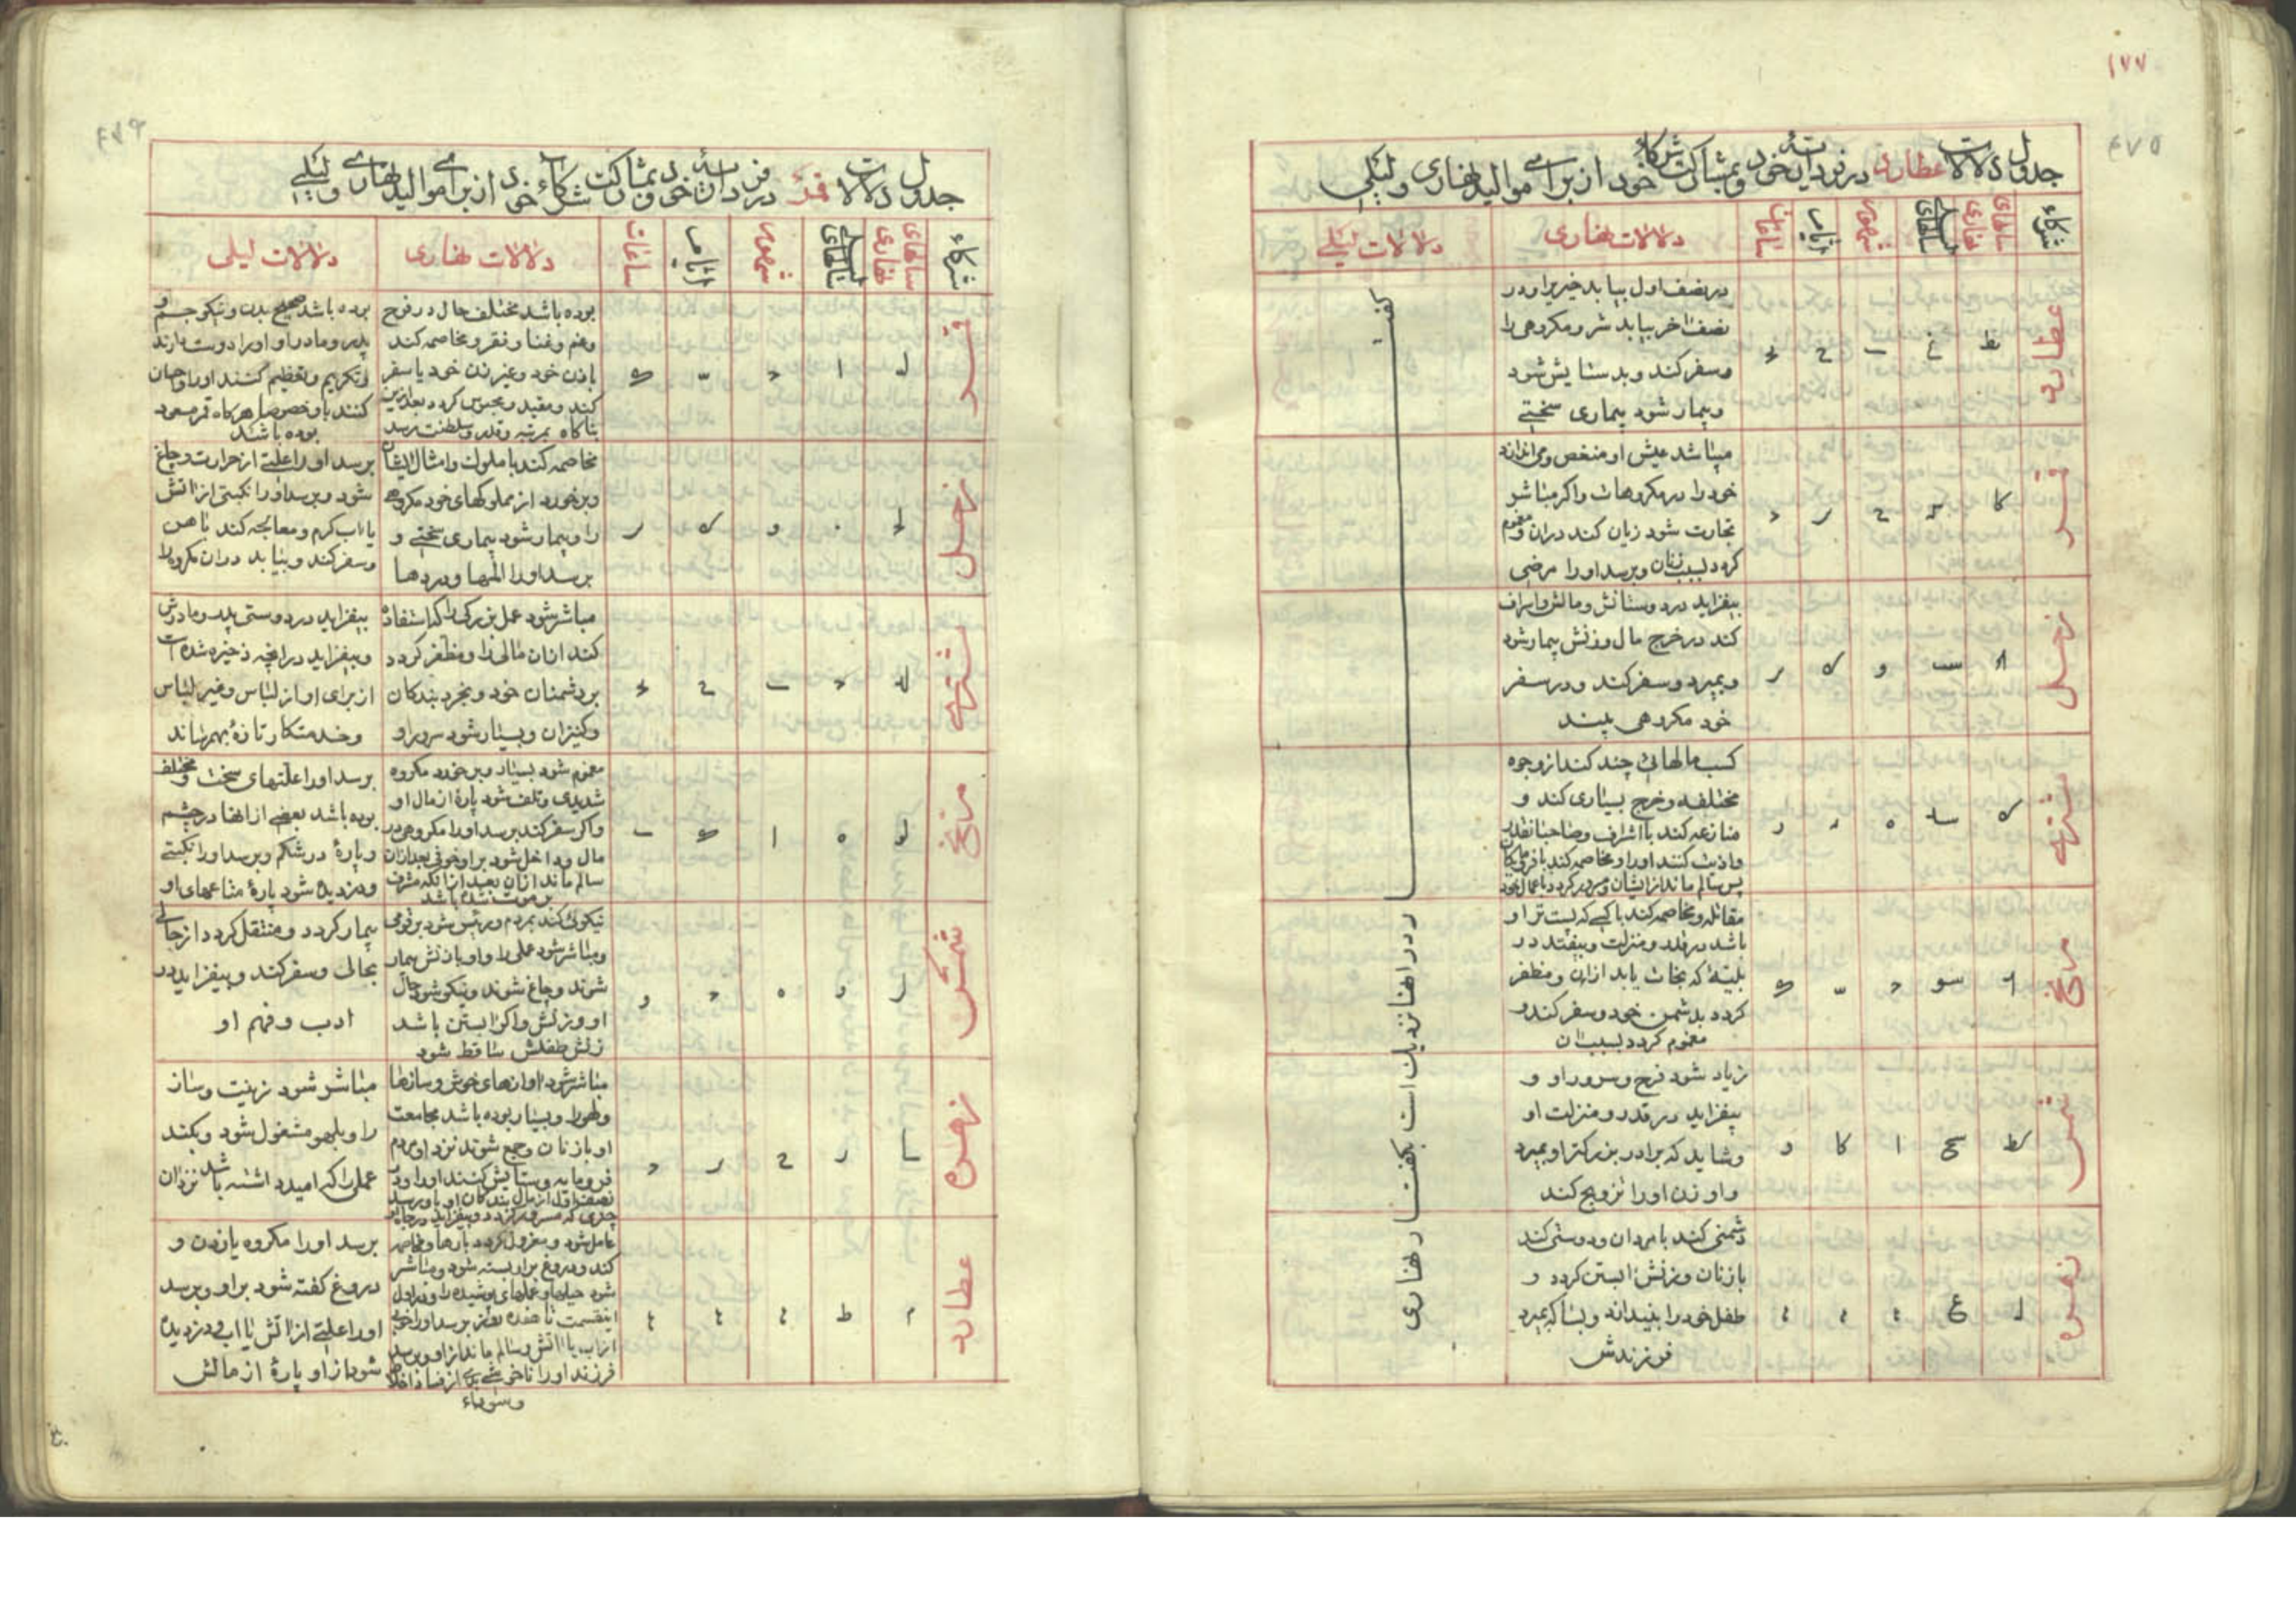 ۱۷۷
جدول دلالات عطارد در فردارات خود و بمشارکت شرکاء خود از برای موالید نهاری و لیلی
شرکاء
سالهای نهاری
سالهای لیلی
شهور
ایام
ساعات
دلالات نهاری
دلالات لیلی
عطارد
در نصف اول بیابد خیر را و در
نصف اخر بیابد شر و مکروهی را
و سفر کند و بد ستایش شود
و بیمار شود بیماری سختی
قمر
میباشد عیش او منغص و می اندازد
خود را در مکروهات و اکر مباشر
تجارت شود زیان کند در ان و مغموم
کردد بسبب زنان و برسد او را مرضی
زحل
بیفزاید در دوستانش و مالش و اسراف
کند در خرج مال و زنش بیمار شود
و بمیرد و سفر کند و در سفر
خود مکروهی بیند
مشتری
کسب مالهائی چند کند از وجوه
مختلفه و خرج بسیاری کند و
منازعه کند با اشراف و صاحبان قدر
و اذیت کنند او را و مخاصمه کند با
پس سالم ماند از ایشان و مسرور کردد باعمال خود
مریخ
مقاتله و مخاصمه کند با کسی که پست تر از او
باشد در قدر و منزلت و بیفتد در
بلیّهٔ که نجات یابد از ان و مظفر
کردد بدشمن خود و سفر کند و
مغموم کردد بسبب ان
شمس
زیاد شود فرح و سرور او و
بیفزاید در قدر و منزلت او
و شاید که برادر بزرکتر او بمیرد
و او زن او را تزویج کند
زهره
دشمنی کند با مردان و دوستی کند
با زنان و زنش ابستن کردد و
طفل خود را بیندازد و بسا که بمیرد
فرزندش
کفتـــار در انها نزدیک است بکفتـــار نهاری
جدول دلالات قمر در فردارات خود و بمشارکت شرکاء خود از برای موالید نهاری و لیلی
شرکاء
سالهای نهاری
سالهای لیلی
شهور
ایام
ساعات
دلالات نهاری
دلالات لیلی
قمر
بوده باشد مختلف حال در فرح
و غم و غنا و فقر و مخاصمه کند
با زن خود و غیر زن خود یا سفر
کند و مقید و محبوس کردد بعد از این
بناکاه بمرتبه و قدر و سلطنت برسد
بوده باشد صحیح بدن و نیکو جسم و
پدر و مادر او او را دوست دارند
و تکریم و تعظیم کنند او را و احسان
کنند باو خصوصا هر کاه قمر مسعود
بوده باشد
زحل
مخاصمه کند با ملوک و امثال ایشان
و برخورد از مملوکهای خود مکروهی
را و بیمار شود بیماری سختی و
برسد او را المها و دردها
برسد او را علتی از حرارت و چاغ
شود و برسد او را نکبتی از اتش
یا اب کرم و معالجه کند باهن
و سفر کند و بیابد در ان مکروه را
مشتری
مباشر شود عمل بزرکی را که استفاده
کند از ان مالی را و مظفر کردد
بر دشمنان خود و بخرد بندکان
و کنیزان و بسیار شود سرور او
بیفزاید در دوستی پدر و مادرش
و بیفزاید در انچه ذخیره شده است
از برای او از لباس و غیر لباس
و خدمتکار تازهٔ بهم رساند
مریخ
مغموم شود بسیار و برخورد مکروه
شدیدی و تلف شود پارهٔ از مال او
و اکر سفر کند برسد او را مکروهی در
مال و داخل شود بر او خوفی بعد از ان
سالم ماند از ان بعد از انکه مشرف
بر موت شده باشد
برسد او را علتهای سخت و مختلف
بوده باشد بعضی از انها در چشم
و پارهٔ در شکم و برسد او را نکبتی
و دزدیده شود پارهٔ متاعهای او
شمس
نیکوئی کند بمردم و رئیس شود بر قومی
و مباشر شود عملی را و او با زنش بیمار
شوند و چاغ شوند و نیکو شود حال
او و زنش و اکر ابستن باشد
زنش طفلش ساقط شود
بیمار کردد و منتقل کردد از جائی
بجائی و سفر کند و بیفزاید در
ادب و فهم او
زهره
مباشر شود اوازهای خوش و سازها
و لهو را و بسیار بوده باشد مجامعت
او با زنان و جمع شوند نزد او مردم
فرومایه و ستایش کنند او را و در
نصف اول از مال بندکان او باو برسد
چیزی که مسرور کردد و بیفزاید در جاه او
مباشر شود زینت و ساز
را و بلهو مشغول شود و بکند
عملی را که امید داشته باشد نزد ان
عطارد
عامل شود و معزول کردد بارها و مخاصمه
کند و دروغ بر او بسته شود و مباشر
شود حیلها و عملهای پوشیده را و در اول
از اب یا اتش و سالم ماند از او و برسد
فرزند او را ناخوشی
و سوداء
برسد او را مکروه یا زدن و
دروغ کفته شود بر او و برسد
او را علتی از اتش یا اب و دزدیده
شود از او پارهٔ از مالش